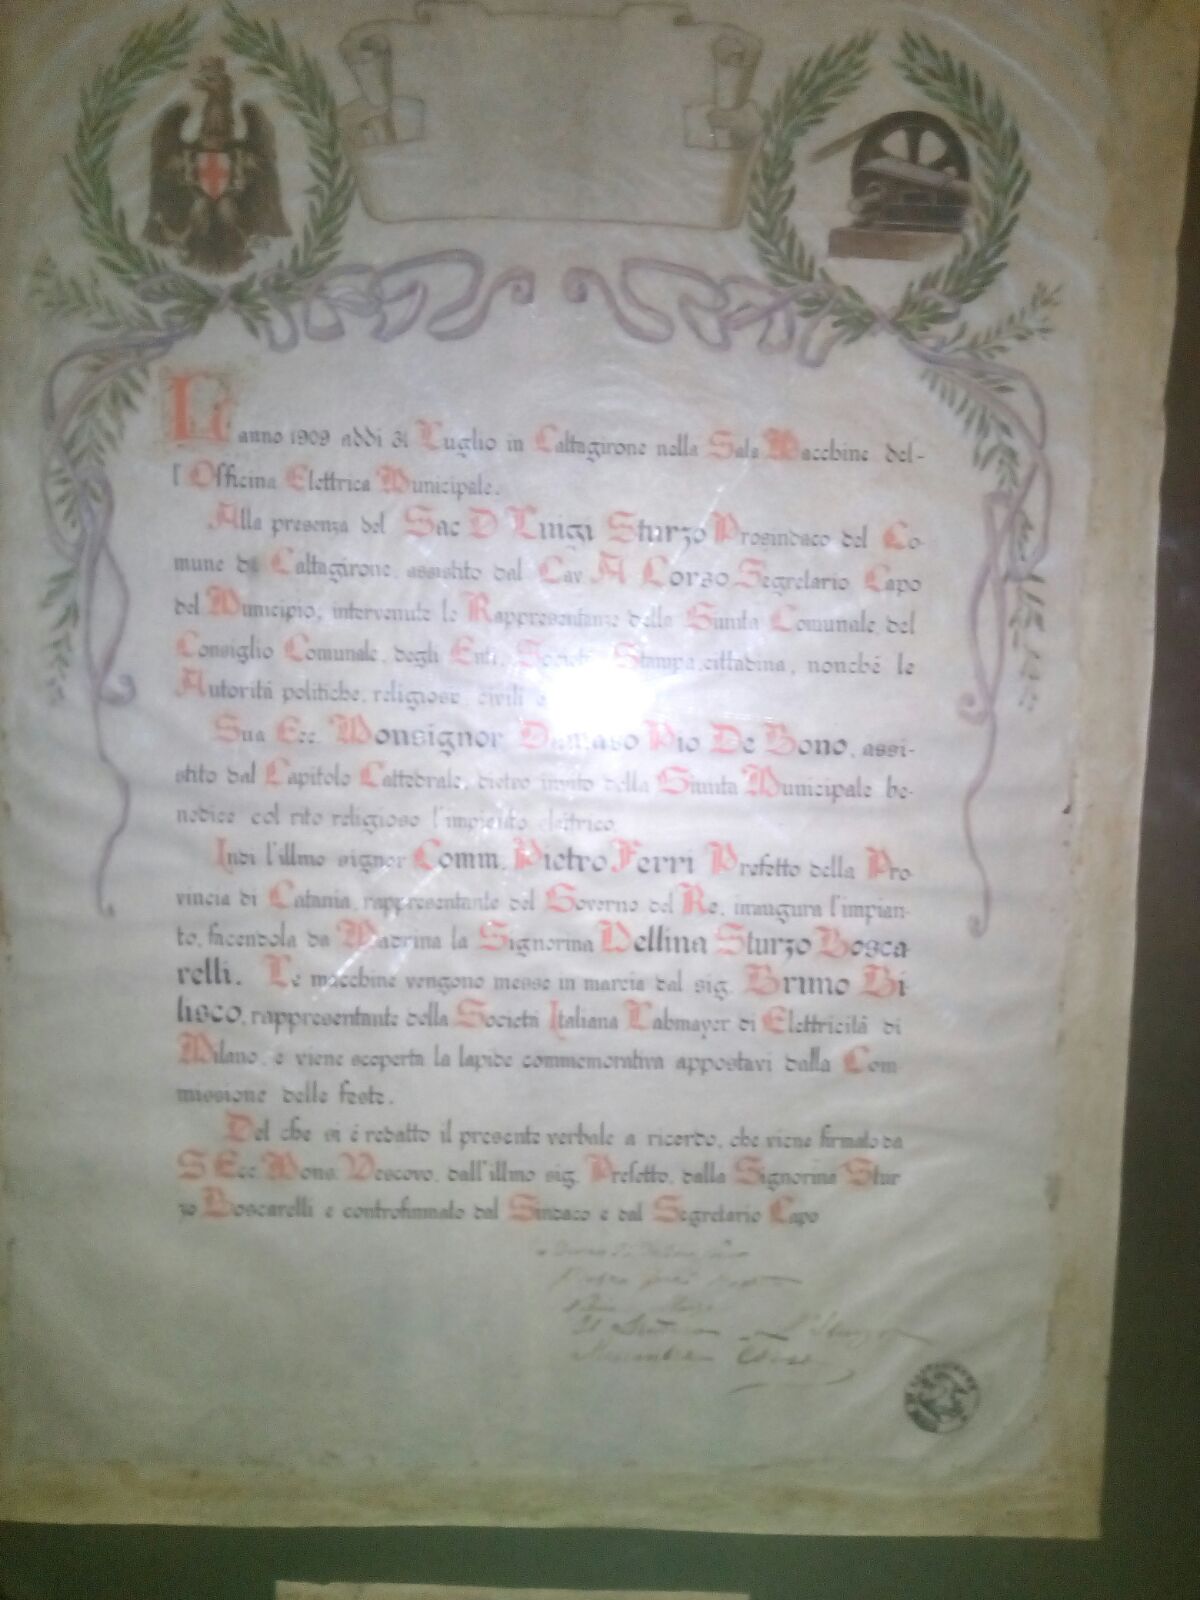 L'anno 1909 addì 31 Luglio in Caltagirone nella Sala Macchine del-
l'Officina Elettrica Municipale.
Alla presenza del Sac D Luigi Sturzo Prosindaco del Co-
mune di Caltagirone, assistito dal Cav A Corso Segretario Capo
del Municipio, intervenute le Rappresentanze della Giunta Comunale, del
Consiglio Comunale, degli Enti, Società Stampa cittadina, nonché le
Autorità politiche, religiose, civili e
Sua Ecc. Monsignor Damaso Pio De Bono, assi-
stito dal Capitolo Cattedrale, dietro invito della Giunta Municipale be-
nedice col rito religioso l'impianto elettrico.
Indi l'illmo signor Comm. Pietro Ferri Prefetto della Pro
vincia di Catania, rappresentante del Governo del Re, inaugura l'impian-
to, facendola da Madrina la Signorina Nellina Sturzo Bosca
relli. Le macchine vengono messe in marcia dal sig. Bruno Bi
lisco, rappresentante della Società Italiana Lahmayer di Elettricità di
Milano, e viene scoperta la lapide commemorativa appostavi dalla Com
missione delle feste.
Del che si è redatto il presente verbale a ricordo, che viene firmato da
S Ecc Mons Vescovo, dall'illmo sig. Prefetto, dalla Signorina Stur
zo Boscarelli e controfirmato dal Sindaco e dal Segretario Capo